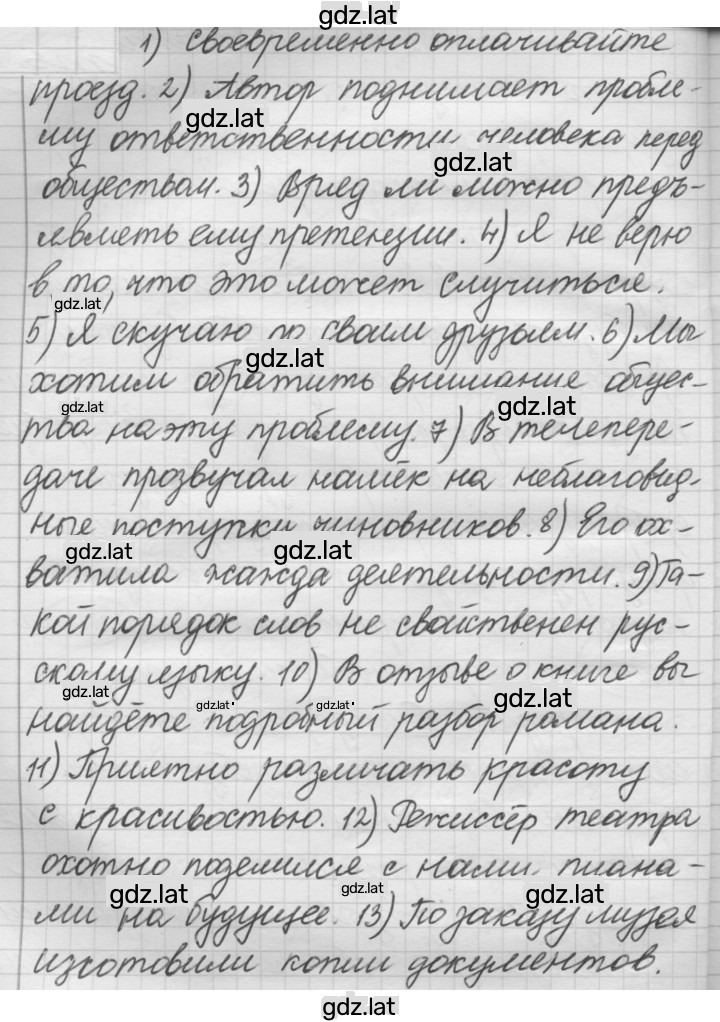 gdz.lat
1) Своевременно оплачивайте
проезд. 2) Автор поднимает пробле-
gdz.lat
му ответственности человека перед
gdz.lat
обществом. 3) Вряд ли можно предъ-
являть ему претензии. 4) Я не верю
в то, что это может случиться.
gdz.lat
5) Я скучаю по своим друзьям. 6) Мы
gdz.lat
хотим обратить внимание общес-
gdz.lat gdz.lat
тва на эту проблему. 7) В телепере-
даче прозвучал намёк на неблаговид-
ные поступки чиновников. 8) Его ох-
gdz.lat gdz.lat
ватила жажда деятельности. 9) Та-
кой порядок слов не свойственен рус-
скому языку. 10) В отзыве о книге вы
gdz.lat gdz.lat gdz.lat gdz.lat
найдёте подробный разбор романа.
11) Приятно различать красоту
с красивостью. 12) Режиссёр театра
охотно поделился с нами плана-
gdz.lat gdz.lat gdz.lat
ми на будущее. 13) По заказу музея
изготовили копии документов.
gdz.lat